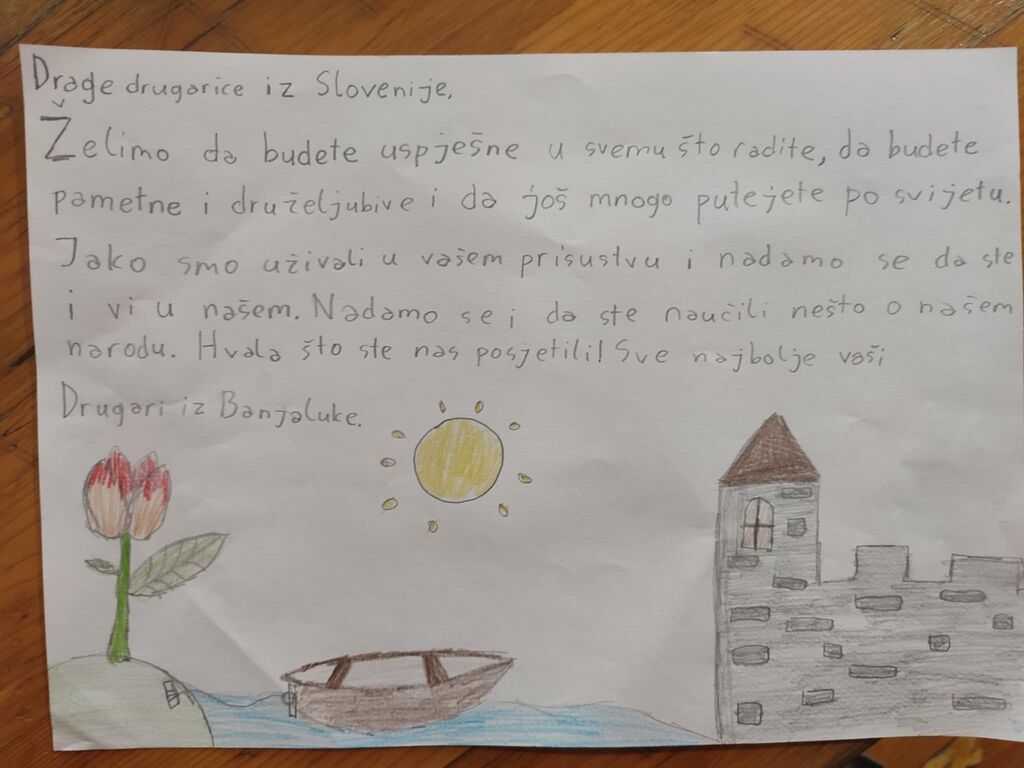 Drage drugarice iz Slovenije,
Želimo da budete uspješne u svemu što radite, da budete
pametne i druželjubive i da još mnogo putejete po svijetu.
Jako smo uživali u vašem prisustvu i nadamo se da ste
i vi u našem. Nadamo se i da ste naučili nešto o našem
narodu. Hvala što ste nas posjetili! Sve najbolje vaši
Drugari iz Banjaluke.